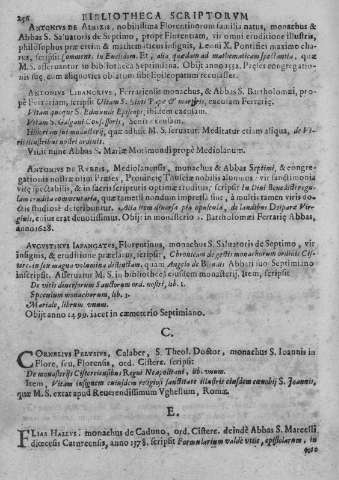 256 BIBLIOTHECA SCRIPTORVM
ANTONIVS DE ALBIZIS, nobilissima Florentinorum familia natus, monachus &
Abbas S. Salvatoris de Septimo, prope Florentiam, vir omni eruditione illustris,
philosophus præ cæteris & mathematicus insignis, Leoni X. Pontifici maximo cha-
rus, scripsit Comment. in Euclidem. Et, alia quædam ad mathematicam spectantia, quæ
M. S. asseruantur in bibliotheca Septimiana. Obijt anno 1532. Preses congregatio-
nis suæ, cum aliquatum sibi eiusdem
ANTONIVS LIBANORIVS, Ferrariensis monachus, & Abbas S. Bartholomæi, pro-
pè Ferrariam, scripsit Vitam S. Sixti Papæ & martyris, excusam Ferrariæ.
Vitam quoque S. Edmundi Episcopi, ibidem excusam.
Vitam S. Galgani Confessoris, Senis excusam.
Historiam sui monasterij, quæ adhuc M. S. seruatur. Meditatur etiam aliqua, de Vi-
ris illustribus nostri ordinis.
Vixit nunc Abbas S. Mariæ Morimondi propè Mediolanum.
ANTONIVS DE RVBEIS, Mediolanensis, monachus & Abbas Septimi, & congre-
gationis nostræ olim Præses, Prouinciæ Tusciæ nobilis alumnus: vir sanctimonia
vitæ spectabilis, & in sacris scripturis optimè eruditus, scripsit In Diui Benedicti regu-
lam erudita commentaria, quæ tametsi nondum impressa sint, à multis tamen viris do-
ctis studiosè describuntur. Alia item diuersa piæ opuscula, de laudibus Deiparæ Vir-
ginis, eius erat deuotissimus. Obijt in monasterio S. Bartholomæi Ferrariæ Abbas,
anno 1628.
AVGVSTINVS IAPANGATES, Florentinus, monachus S. Saluatoris de Septimo, vir
insignis, & eruditione præclarus, scripsit, Chronicam de gestis monachorum ordinis Cis-
terc. in sex magna volumina distinctam, quam Angelo de Abbati suo Septimiano
inscripsit. Asseruatur M. S. in bibliotheca eiusdem monasterij. Item, scripsit
De vitis dicecesum Sanctorum ord. nostri, lib. 1.
Speculum monachorum, lib. 1.
Mariale, librum vnum.
Obijt anno 1499. iacet in cæmeterio Septimiano.
C.
CORNELIVS PELVSIVS, Calaber, S. Theol. Doctor, monachus S. Ioannis in
Flore, seu, Florensis, ord. Cisterc. scripsit:
De monasterijs Cisterciensibus Regni Neapolitani, lib. vnum.
Item, Vitam insignem cuiusdam religiosi sanctitate illustris eiusdem cœnobij S. Ioannis,
quæ M. S. extat apud Reuerendissimum Vghellum, Romæ.
E.
ELIAS HALLVS: monachus de Caduno, ord. Cisterc. deindè Abbas S. Marcelli
diœcesis Caturcensis, anno 1378. scripsit Formularium valdè vtile, epistolarum, in
quo